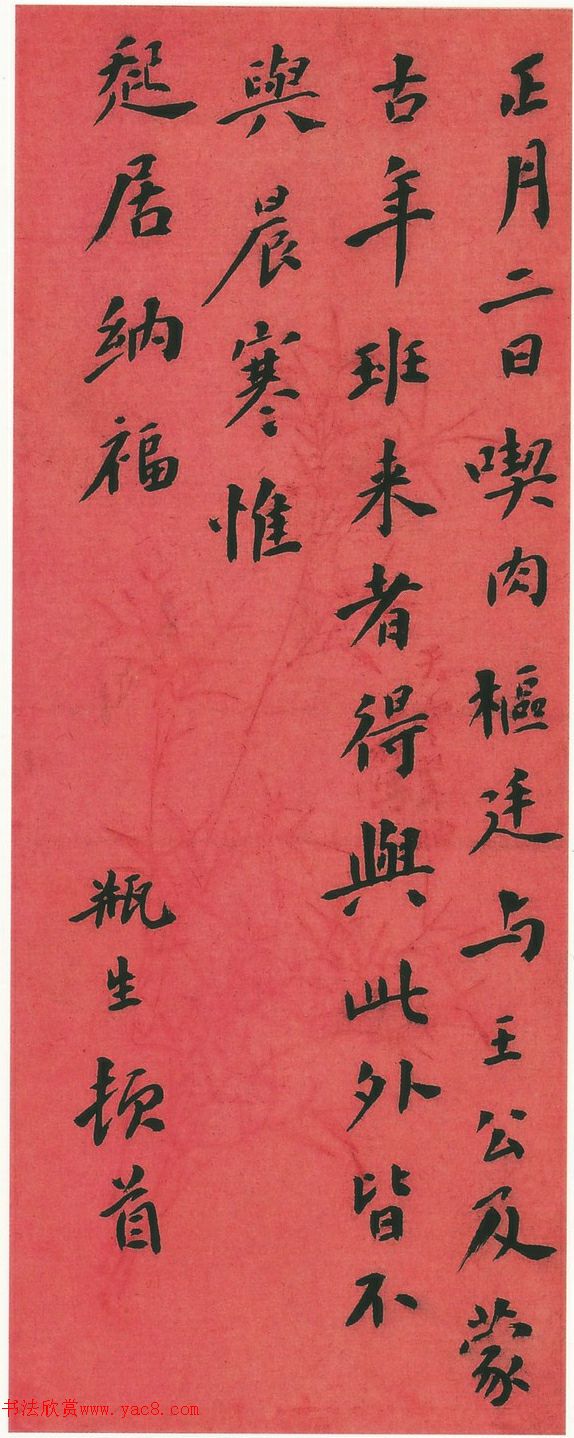 正月二日喫肉樞廷与王公及蒙
古年班来者得與此外皆不
與晨寒惟
起居納福
瓶生頓首
书法欣赏www.yac8.com